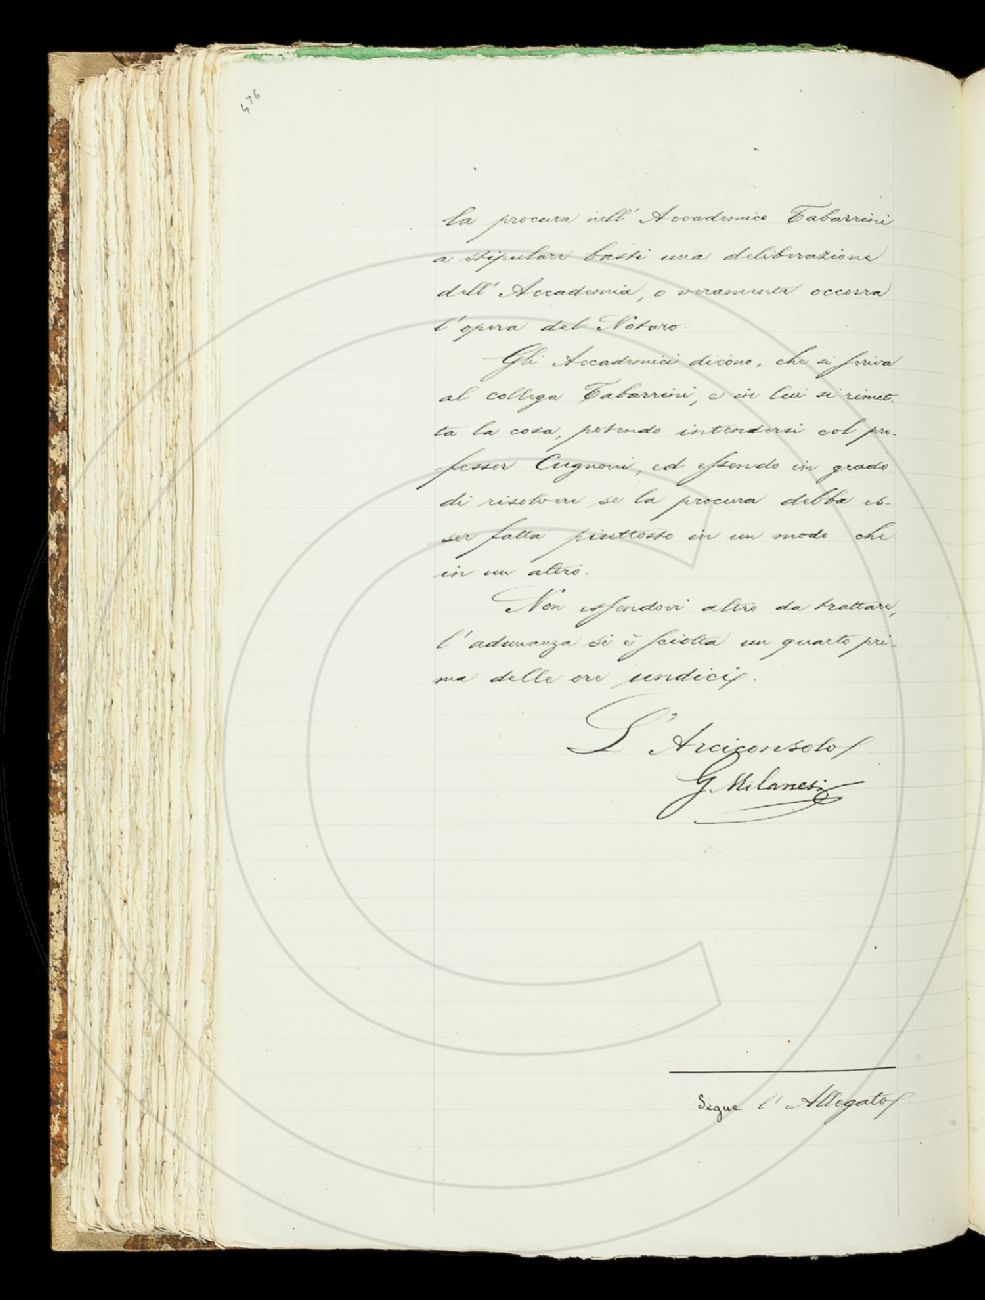 476
la procura nell' Accademico Tabarrini
a stipulare basti una deliberazione
dell' Accademia, o veramente occorra
l'opera del Notaro.
Gli Accademici dicono, che si scriva
al collega Tabarrini, e in lui si rimet-
ta la cosa, potendo intendersi col pro-
fessor Cugnoni, ed essendo in grado
di risolvere se la procura debba es-
ser fatta piuttosto in un modo che
in un altro.
Non essendovi altro da trattare,
l'adunanza si è sciolta un quarto pri-
ma delle ore undici.
L'Arciconsolo
G. Milanesi
Segue l'Allegato